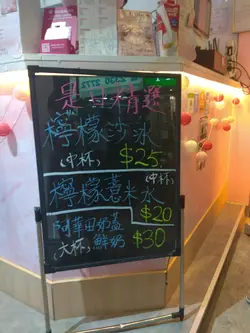 是日精選
檸檬沙冰
(中杯) $25
檸檬薏米水
(中杯)
$20
阿華田奶蓋
(大杯) 鮮奶 $30